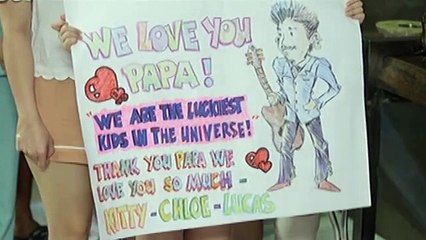 WE LOVE YOU
PAPA!
"WE ARE THE LUCKIEST
KIDS IN THE UNIVERSE!"
THANK YOU PAPA WE
LOVE YOU SO MUCH -
KITTY - CHLOE - LUCAS